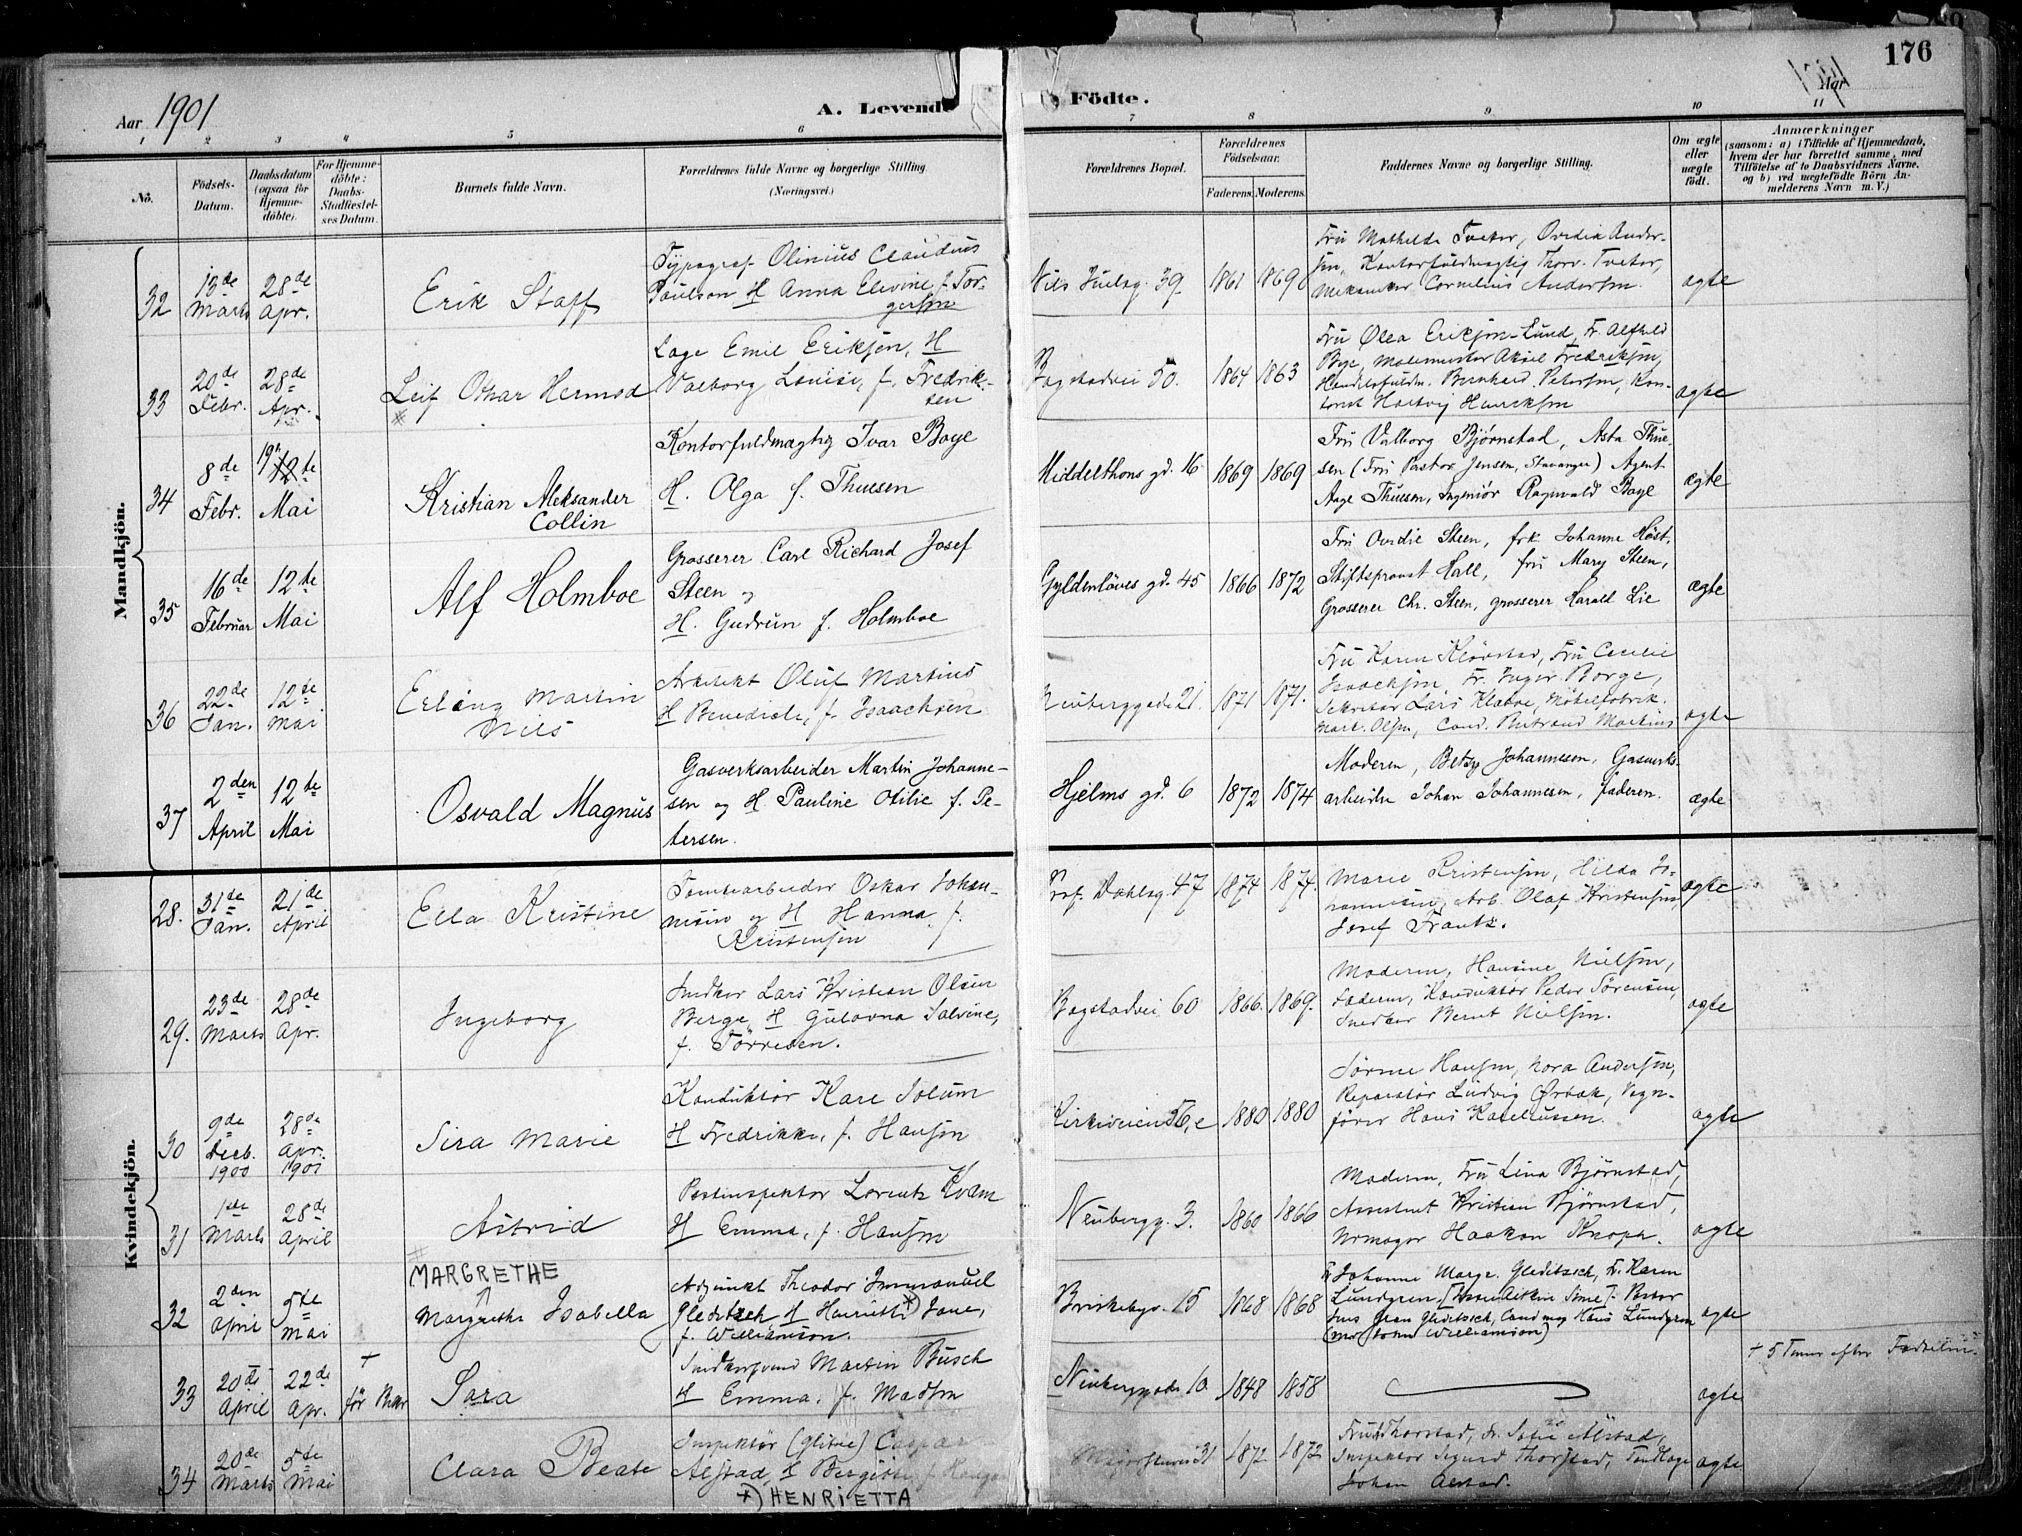 176
Aar 1901
A. Levende Födte.
Aar
1 2 3 4 5 6 7 8 9 10 11
No.
Födsels-Datum.
Daabsdatum (ogsaa for Hjemme-döbte).
For Hjemme-döbte: Daabs-Stadfæstel-ses Datum.
Barnets fulde Navn.
Forældrenes fulde Navne og borgerlige Stilling
(Næringsvei.)
Forældrenes Bopæl.
Forældrenes Födselsaar.
Faderens. Moderens.
Faddernes Navne og borgerlige Stilling.
Om ægte eller uægte födt.
Anmærkninger
(saasom: a) i Tilfælde af Hjemmedaab,
hvem der har forrettet samme, med
Tilföielse af to Daabsvidners Navne,
og b) ved uægtefödte Börn An-
melderens Navn m. V.)
Mandkjön.
32
13de Marts
28de Apr.
Erik Staff
Typograf Olinius Claudius
Paulson H Anna Elevine f. Tor-
gersen
Nils Juelsg. 39
1861 1869
Fru Mathilde Tveter, Ovedia Ander-
sen, Kontorfuldmægtig Thorv. Tveter,
Mekaniker Cornelius Andersen.
ægte
33
20de Febr.
28de Apr.
Leif Oskar Hermod
Lage Emil Eriksen, H
Valborg Louise, f. Fredrik-
sen
Bogstadvei 50.
1864 1863
Fru Olea Eriksen-Lund, Fr. Alfhild
Bye, Malermester Aksel Fredriksen,
Handelsfuldm. Bernhard Petersen, Kon-
torist Hartvig Henriksen
ægte
34
8de Febr.
19de 12te Mai
Kristian Aleksander
Collin
Kontorfuldmægtig Ivar Boye
H. Olga f. Thuesen
Middelthons gd. 16
1869 1869
Fru Valborg Bjørnstad, Asta Thue-
sen (Fru Pastor Jensen, Stavanger) Agent
Aage Thuesen, Ingeniør Ragnvald Boye
ægte
35
16de Februar
12te Mai
Alf Holmboe
Grosserer Carl Richard Josef
Steen og
H. Gudrun f. Holmboe
Gyldenløves gd. 45
1866 1872
Fru Ovidie Steen, frk Johanne Høst,
Stiftsprovst Hall, fru Mary Steen,
Grosserer Chr. Steen, grosserer Harald Lie
ægte
36
22de Jan.
12te Mai
Erling Martin
Nils
Arkitekt Oluf Martius
H Benedicte, f. Isaachsen
Neuberggade 21.
1871 1871.
Fru Karen Kløvstad, Fru Cecilie
Isaachsen, Fr. Inger Borge,
Sekretær Lars Klaboe, Møbelfabrik.
Mart. Olsen, Cand. Bertrand Martius
ægte
37
2den April
12te Mai
Osvald Magnus
Gasverksarbeider Martin Johanne-
sen og H Pauline Otilie f. Pe-
tersen.
Hjelms gd. 6
1872 1874
Moderen, Betzy Johannesen, Gasverks-
arbeider Johan Johannesen, faderen.
ægte
Kvindekjön.
28.
31de Jan.
21de April
Ella Kristine
Tomtearbeider Oskar Johan-
nesen og H Hanna f.
Kristensen
Prof. Dahlsg. 47
1874 1874.
Marie Kristensen, Hilda Jo-
hannesen, Arb. Olaf Kristensen,
Josef Frantz.
ægte
29.
23de Marts
28de Apr.
Ingeborg
Snedker Lars Kristian Olsen
Berge H Gulovna Salvine,
f. Tørresen.
Bogstadvei 60
1866. 1869.
Moderen, Hansine Nielsen,
Faderen, Konduktør Peder Sørensen,
Snedker Bernt Nielsen.
ægte
30
9de Decb. 1900
28de Apr. 1901
Sira Marie
Konduktør Kare Solum
H Fredrikke, f. Hansen
Kirkeveien 56, e
1880 1880
Sørine Hansen, Nora Andersen,
Reparatør Ludvig Ørbak, Vogn-
fører Hans Karelinssen.
ægte
31
1ste Marts
28de April
Astrid
Postinspektør Lorentz Kvam
H Emma, f. Hansen
Neubergg. 3.
1860 1866
Moderen, Fru Lina Bjørnstad,
Assistent Kristian Bjørnstad,
Urmager Haakon Knoph.
ægte
32
2den April
5te Mai
MARGRETHE
Margrethe Isabella
Adjunkt Theodor Immanuel
Gleditsch H Henriette Jane,
f. Williamson.
Briskebyv. 15
1868 1868
Fr Johanne Marge. Gleditsch, Fr. Karen
Lundgren, Pastor
Jens Gran Gleditsch, Cand mag Hans Lundgren
(Mr John Williamson)
ægte
33
20de April
22de Apr.
+ før Mor
Sara
Snedkersvend Martin Busch
H Emma, f. Madsen
Neuberggade 10
1848 1858
ægte
+ 5 Timer efter Fødselen.
34
20de Marts
5te Mai
Clara Beate
Inspektør Caspar
Alstad, H Bergitte, f. Haugen
+) HENRIETTA
Majorstuvei 31
1872 1872
Fru Thorstad, Fr. Sofie Alstad,
Inspektør Sigurd Thorstad, Tandlæge
Johan Alstad.
ægte